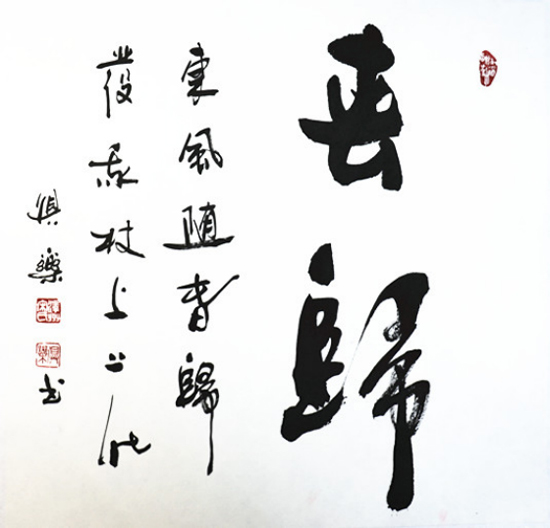 春歸
東風隨春歸
發我枝上花
俱樂
书